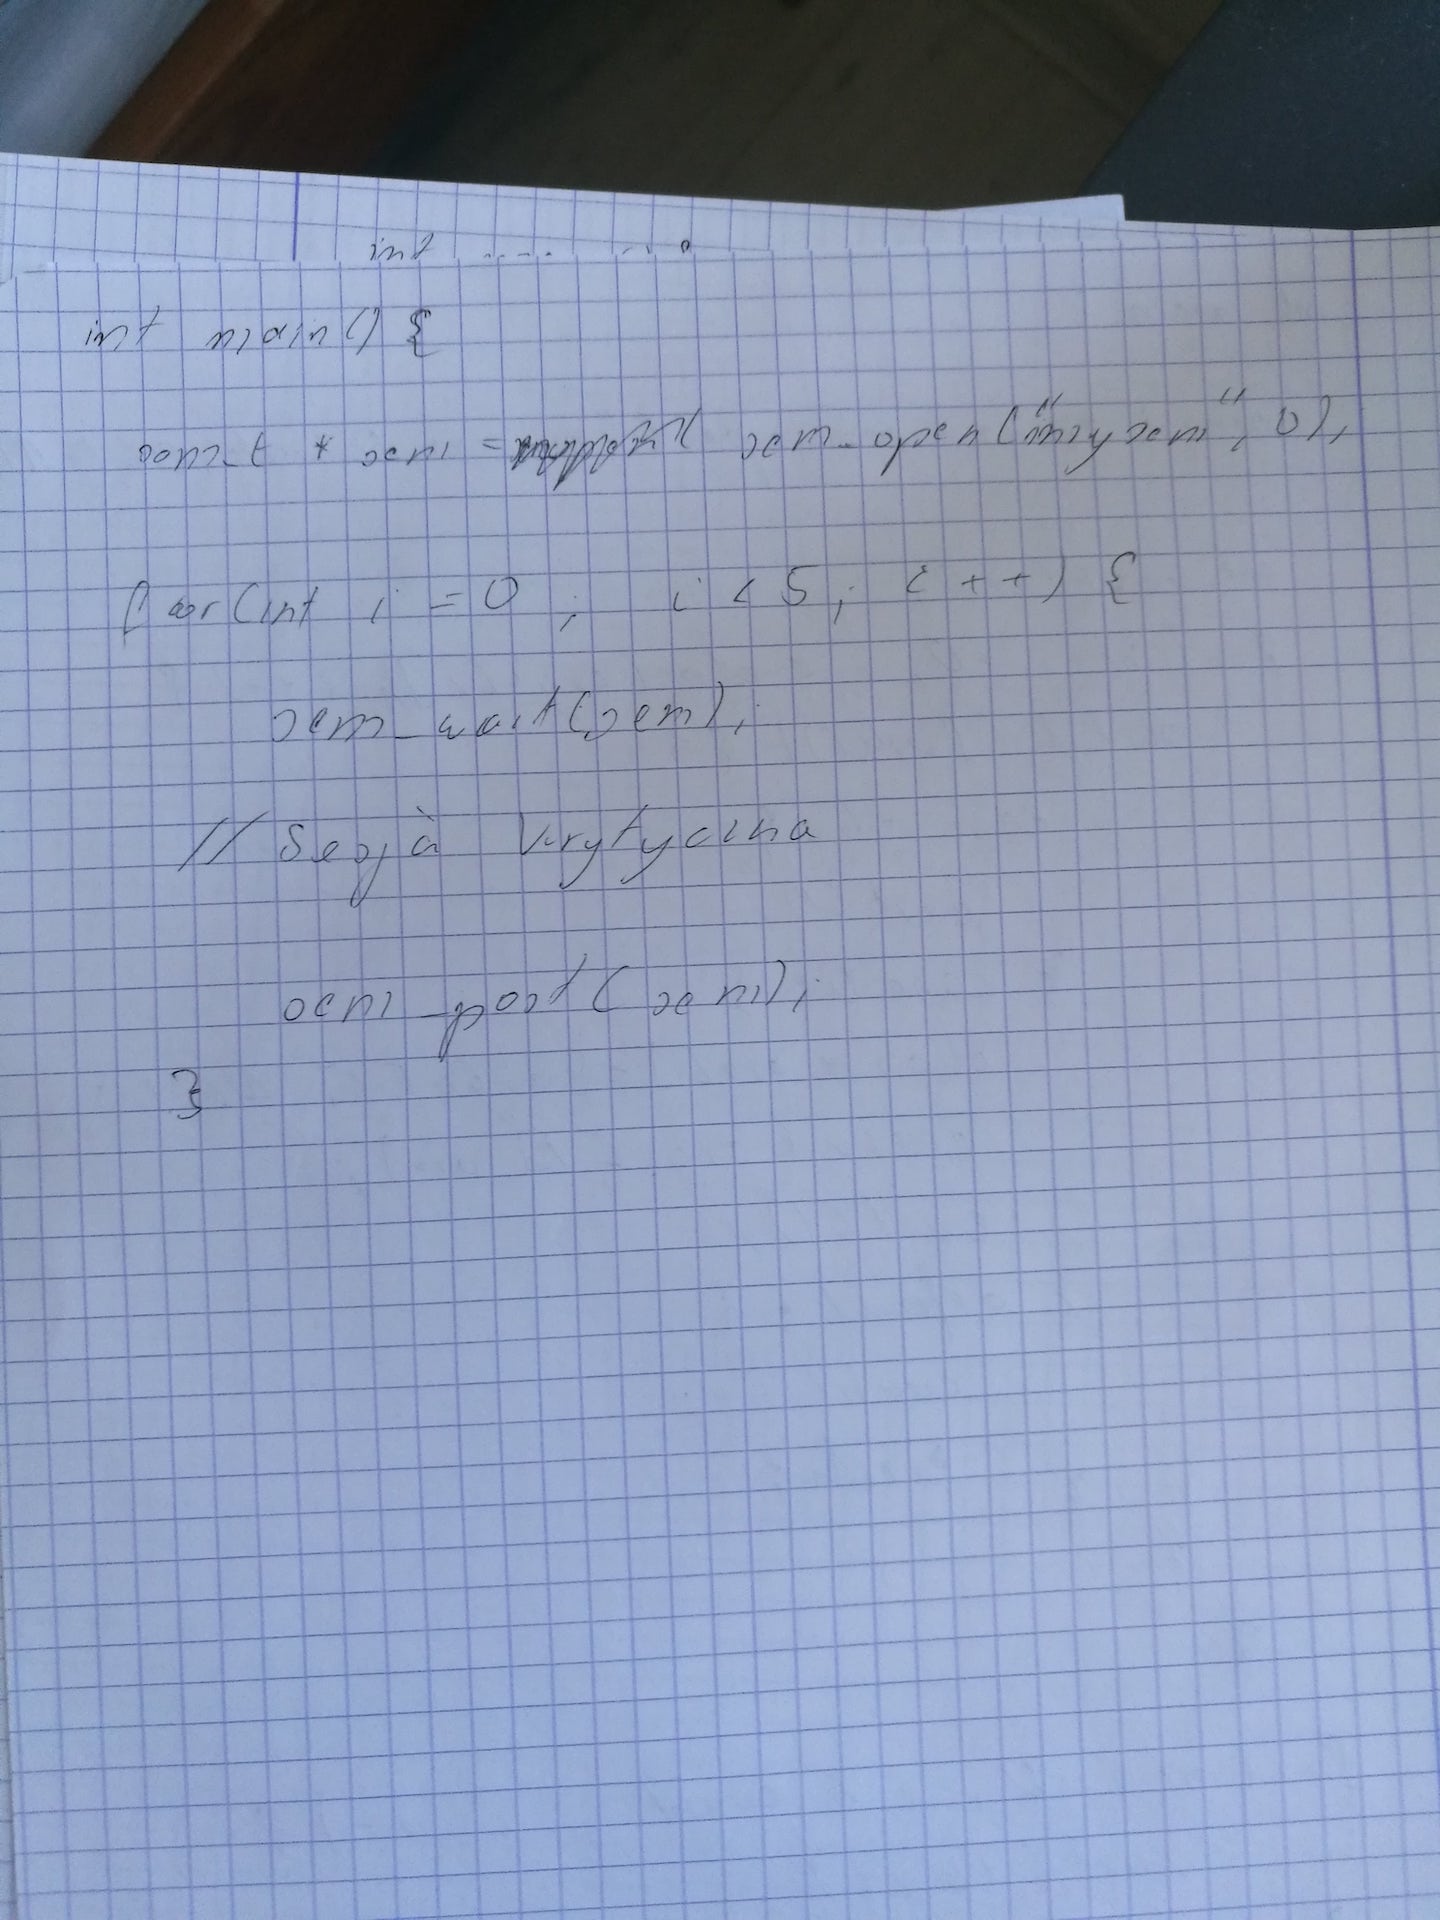 int
int main() {
sem_t * sem = sem_open("mysem", 0);
for(int i = 0 ; i < 5 ; i++) {
sem_wait(sem);
// Sekcja krytyczna
sem_post(sem);
}